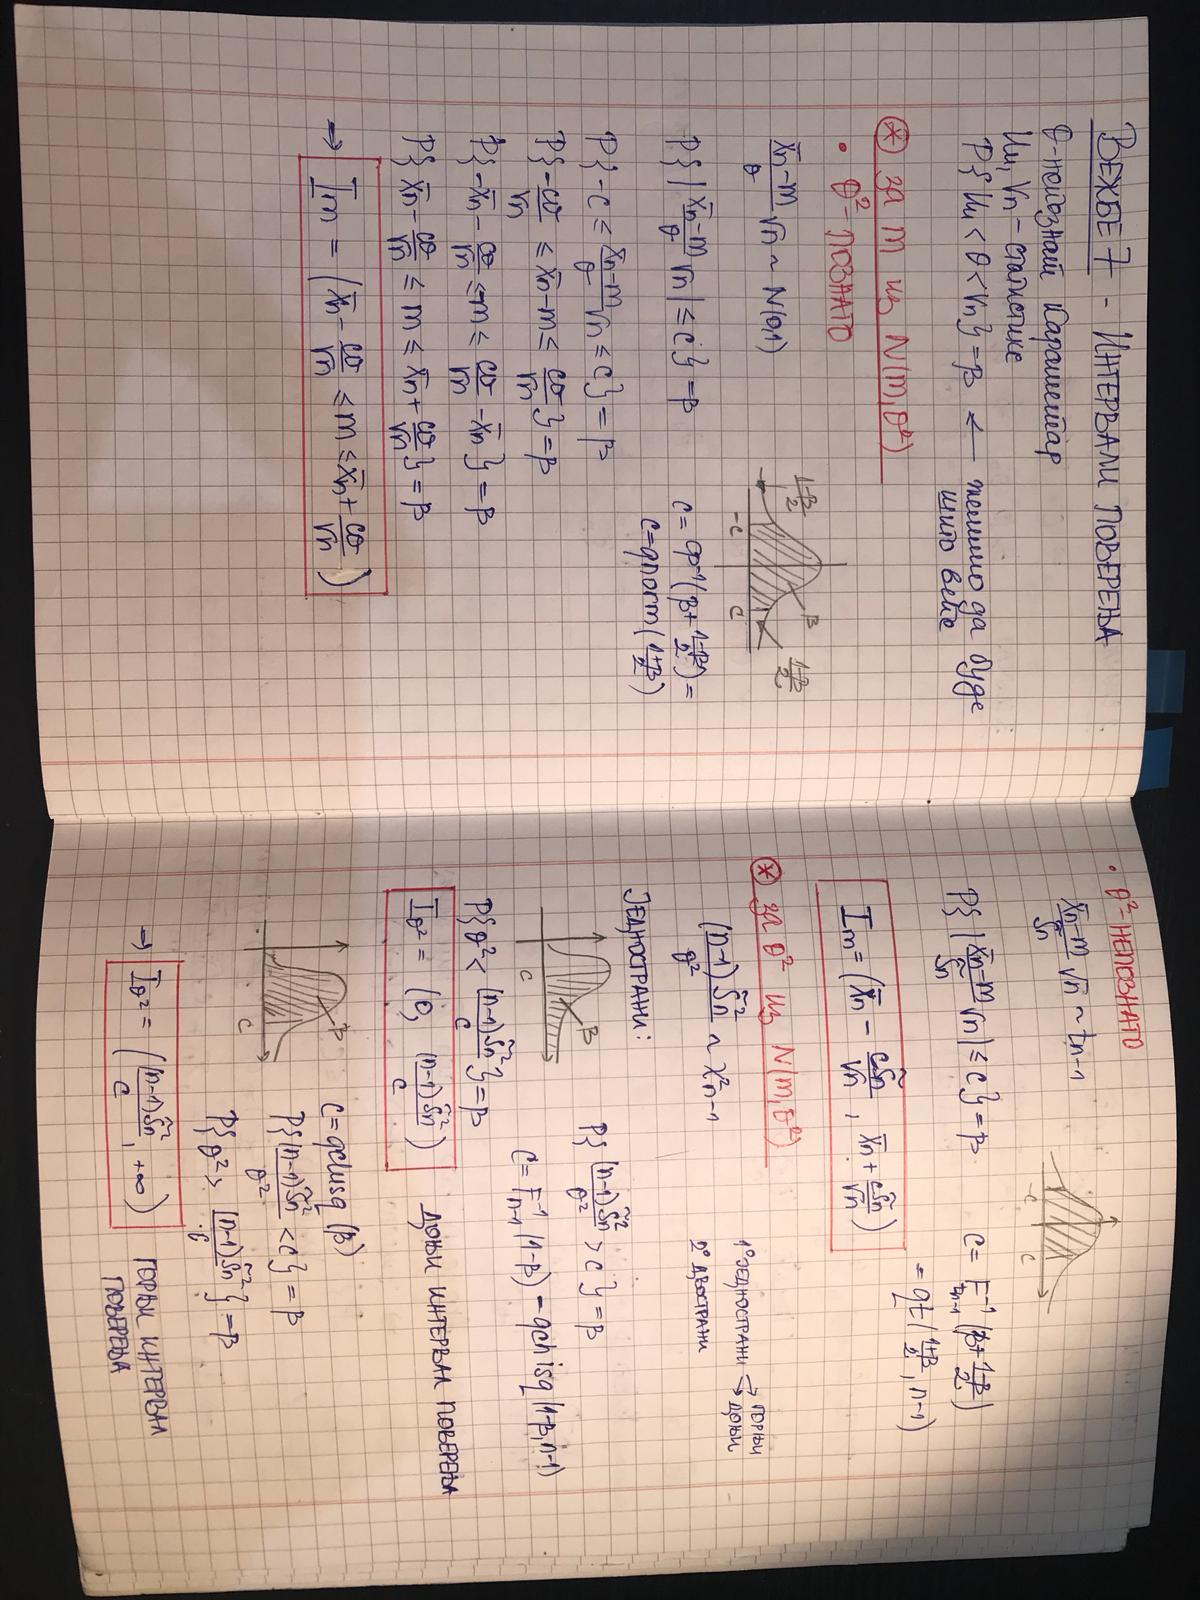 ВЕЖБЕ 7 - ИНТЕРВАЛИ ПОВЕРЕЊА
θ-непознат параметар
Un, Vn - статистике
P{Un < θ < Vn} = β ← желимо да буде
што веће
⊛ за m из N(m, σ²)
• σ²-ПОЗНАТО
(X̄n-m)/σ √n ~ N(0,1)
(1-β)/2 β (1-β)/2
-c c
P{|(X̄n-m)/σ √n| ≤ c} = β
c = φ⁻¹(β + (1-β)/2) =
c = qnorm((1+β)/2)
P{-c ≤ (X̄n-m)/σ √n ≤ c} = β
P{-cσ/√n ≤ X̄n-m ≤ cσ/√n} = β
P{-X̄n - cσ/√n ≤ -m ≤ cσ/√n - X̄n} = β
P{X̄n - cσ/√n ≤ m ≤ X̄n + cσ/√n} = β
→ Im = (X̄n - cσ/√n ≤ m ≤ X̄n + cσ/√n)
• σ²-НЕПОЗНАТО
(X̄n-m)/S̃n √n ~ tn-1
c
P{|(X̄n-m)/S̃n √n| ≤ c} = β
c = F⁻¹tn-1 (β + (1-β)/2)
= qt((1+β)/2, n-1)
Im = (X̄n - cS̃n/√n, X̄n + cS̃n/√n)
⊛ за σ² из N(m, σ²)
(n-1)S̃n²/σ² ~ χ²n-1
1° ЈЕДНОСТРАНИ → ГОРЊИ
→ ДОЊИ
2° ДВОСТРАНИ
ЈЕДНОСТРАНИ:
β
c
P{(n-1)S̃n²/σ² > c} = β
c = F⁻¹n-1 (1-β) - qchisq(1-β, n-1)
P{σ² < (n-1)S̃n²/c} = β
Iσ² = (0, (n-1)S̃n²/c) ДОЊИ ИНТЕРВАЛ ПОВЕРЕЊА
β
c
c = qchisq(β)
P{(n-1)S̃n²/σ² < c} = β
P{σ² > (n-1)S̃n²/c} = β
→ Iσ² = ((n-1)S̃n²/c, +∞) ГОРЊИ ИНТЕРВАЛ
ПОВЕРЕЊА